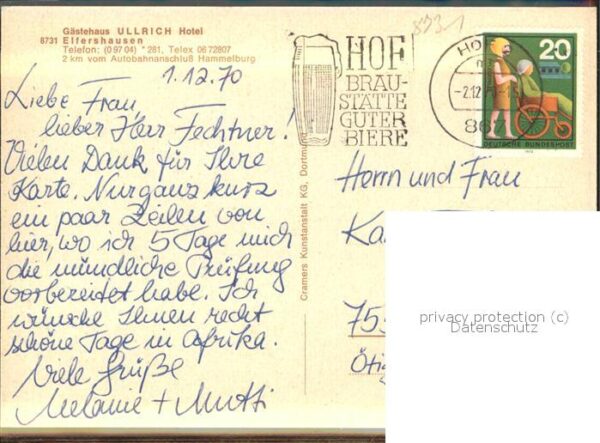 Gästehaus ULLRICH Hotel
8731 Elfershausen
Telefon: (0 97 04) * 281, Telex 06 72807
2 km vom Autobahnanschluß Hammelburg
1.12.70
Liebe Frau
lieber Herr Fechtner!
Vielen Dank für Ihre
Karte. Nur ganz kurz
ein paar Zeilen von
hier, wo ich 5 Tage mich
die mündliche Prüfung
vorbereitet habe. Ich
wünsche Ihnen recht
schöne Tage in Afrika.
Viele Grüße
Melanie + Mutti
Cramers Kunstanstalt KG, Dortmund
8731
HOF
BRAU-
STÄTTE
GUTER
BIERE
HO
-2.12.
867
20
DEUTSCHE BUNDESPOST
Herrn und Frau
Ka
755
Ötig
privacy protection (c)
Datenschutz